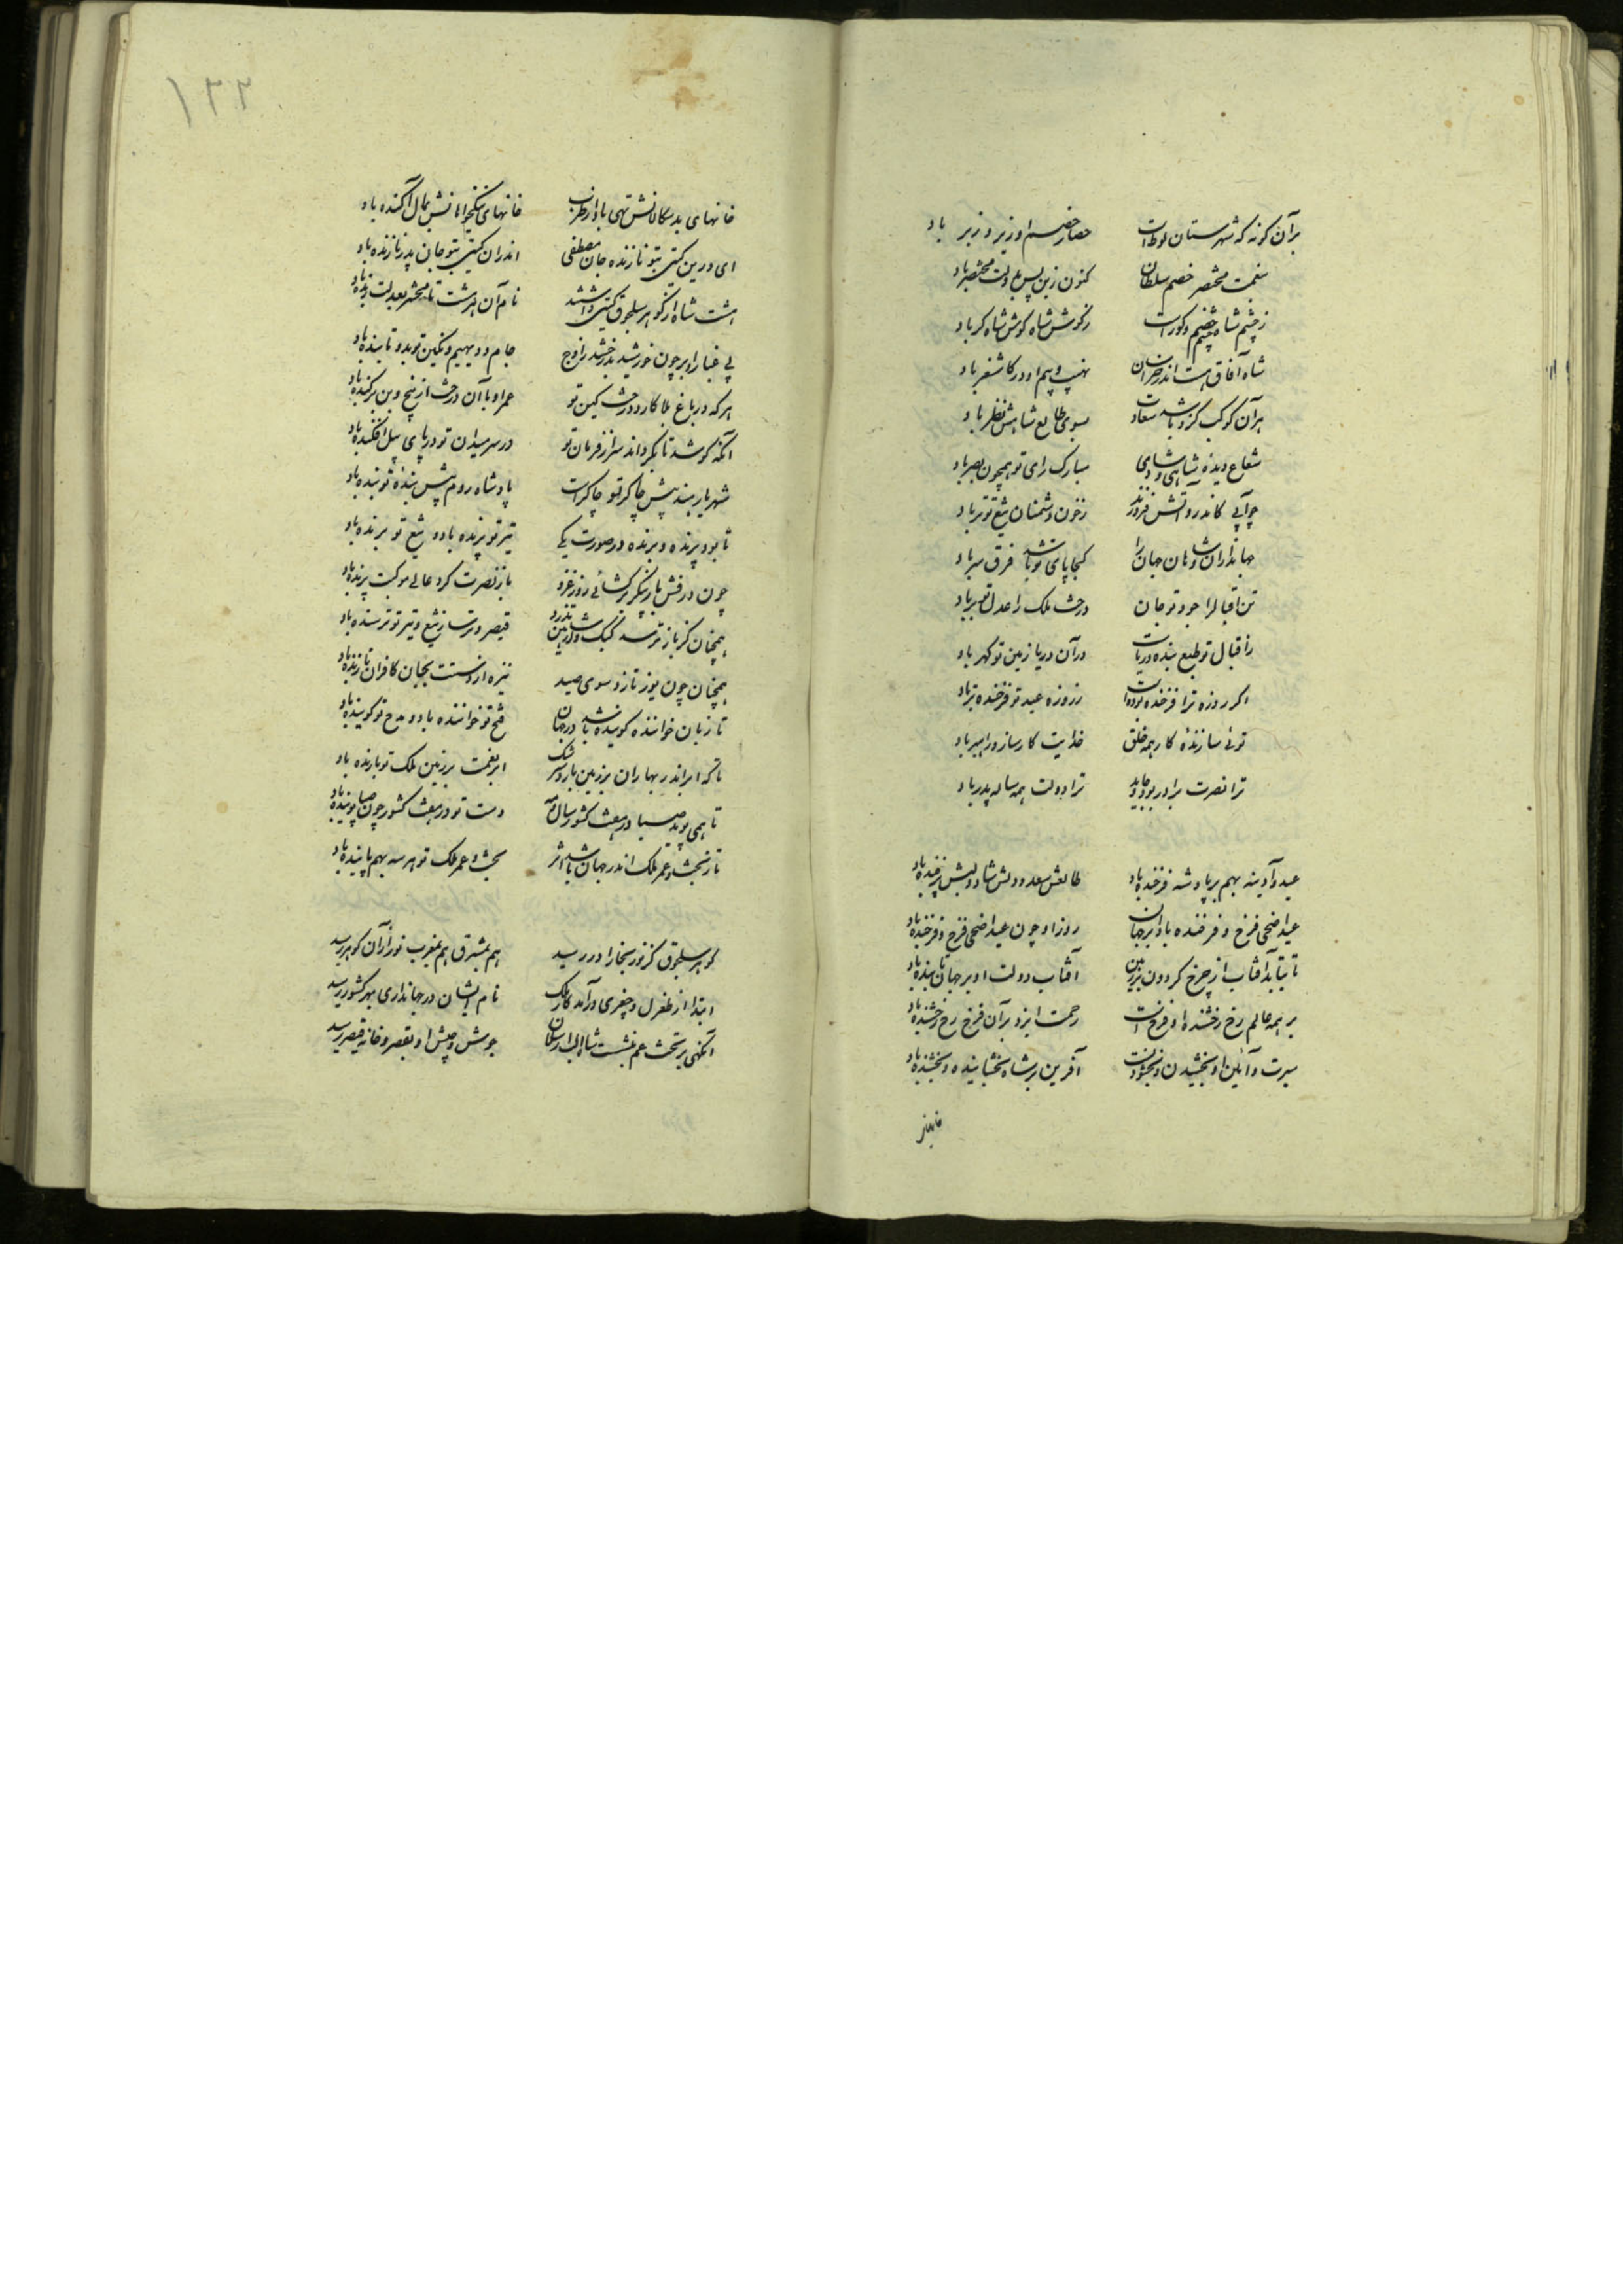 برآن کونه که شهرستان لوط است حصار خصم او زیر و زبر باد
بنعمت مختصر خصم سلطان کنون زین پس بدولت مختصر باد
ز چشم شاه چشم خصم کور است ز کوش شاه کوش شاه کر باد
شاه آفاق هست اندر خراسان نهیب و بیم او در کاشغر باد
هر آن کوکب کزو باشد سعادت بسوی طالع شاهش نظر باد
شعاع دیده شاهی و شادی مبارک رای تو همچون بصر باد
چو آبی کاندرو آتش فروزند ز خون دشمنان تیغ تو تر باد
جهانداران و شاهان جهان را کجا پای تو باشد فرق سر باد
تن اقبال را جود تو جان درخت ملک را عدل تو بر باد
ز اقبال تو طبع بنده دریاست در آن دریا زمین تو کهر باد
اکر روزه ترا فرخنده بوده است ز روزه عید تو فرخنده تر باد
توئی سازندهٔ کار همه خلق خدایت کارساز و راهبر باد
ترا نصرت برادر بود جاوید ترا دولت همه ساله پدر باد
عید و آدینه بهم بر پادشه فرخنده باد طالعش سعد و دلش شاد و لبش پرخنده باد
عید اضحی فرخ و فرخنده باد بر جهان روز او چون عید اضحی فرخ و فرخنده باد
تا بتابد آفتاب از چرخ کردون بر زمین آفتاب دولت او بر جهان تابنده باد
بر همه عالم رخ رخشندهٔ او فرخ است رحمت ایزد بر آن فرخ رخ رخشنده باد
سیرت و آئین او بخشیدن و بخشودنست آفرین بر شاه بخشاینده و بخشنده باد
خانهای
۱۲۲
خانهای بدسکالانش تهی باد از طرب خانهای نیکخواهانش بمال آکنده باد
ای درین کیتی بتو نازنده جان مصطفی اندران کیتی بتو جان پدر نازنده باد
هشت شاه از کوهر سلجوق کیتی داشتند نام آن هر هشت تا محشر بعدلت زنده باد
بی غبار و ابر چون خورشید بدرخشد ز اوج جام و دیهیم و نکین تو بدو تابنده باد
هر که در باغ بلا کارد درخت کین تو عمر او با آن درخت از بیخ و بن برکنده باد
آنکه کوشد تا بکرداند سر از فرمان تو در سر میدان تو در پای پیل افکنده باد
شهریار هند پیش چاکر تو چاکر است پادشاه روم پیش بندهٔ تو بنده باد
تا بود پرنده و برنده در صورت یکی تیر تو پرنده باد و تیغ تو برنده باد
چون درفش باز پیکر برکشائی روز غزو باز نصرت کرد عالی موکبت پرنده باد
همچنان کز باز ترسد کبک و شاهین تذرو قیصر و ترسا ز تیغ و تیر تو ترسنده باد
همچنان چون یوز تازد سوی صید نیزه از دستت بجان کافران تازنده باد
تا زبان خواننده کوینده باشد در جهان فتح تو خواننده باد و مدح تو کوینده باد
تا که ابر اندر بهاران بر زمین بارد سرشک ابر نعمت بر زمین ملک تو بارنده باد
تا همی پوید صبا در هفت کشور سال و مه دست تو در هفت کشور چون صبا پوینده باد
تا ز بخت و عمر و ملک اندر جهان باشد اثر بخت و عمر و ملک تو هر سه بهم پاینده باد
کوهر سلجوق کز نور بخارا در رسید هم بمشرق هم بمغرب نور از آن کوهر رسید
ابتدا از طغرل و چغری درآمد کار ملک نام ایشان در جهانداری بهر کشور رسید
آنکهی بر تخت عم بنشست شاه الب ارسلان جوش و جیش او بقصر و خانه قیصر رسید